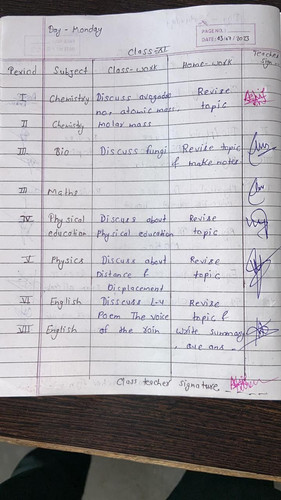 Day - Monday
PAGE NO.:
DATE:
Class-XI
Period Subject Class-work Home-work Teacher sign.
I Chemistry Discuss avogadro Revise
no., atomic mass, topic
II Chemisty molar mass
III Bio Discuss fungi Revise topic
& make notes.
III Maths
IV Physical Discuss about Revise
education Physical education topic
V Physics Discuss about Revise
Distance & topic
Displacement
VI English Disscuss L-4 Revise
Poem The voice topic &
VII English of the rain write summary
, que ans.
Class teacher signature